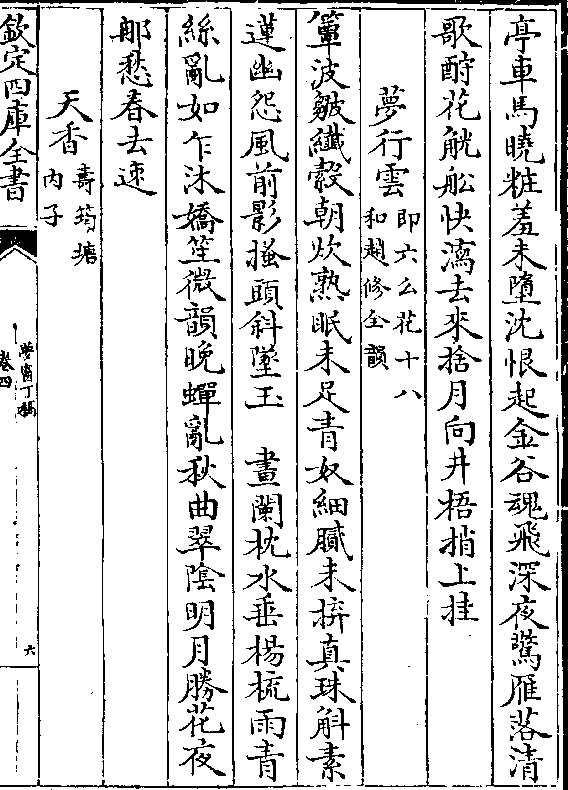 亭車馬曉粧羞未墮沈恨起金谷魂飛深夜驚雁落清
歌酹花觥舩快瀉去來捨月向井梧梢上挂
夢行雲
即六么花十八
和趙修全韻
簟波皺纎縠朝炊熟眠未足青奴細膩未拚真珠斛素
蓮幽怨風前影搔頭斜墜玉　畫闌枕水垂楊梳雨青
絲亂如乍沐嬌笙微韻晚蟬亂秋曲翠陰明月勝花夜
那愁春去速
天香
壽筠塘
内子
欽定四庫全書
夢窗丁稿
卷四
六